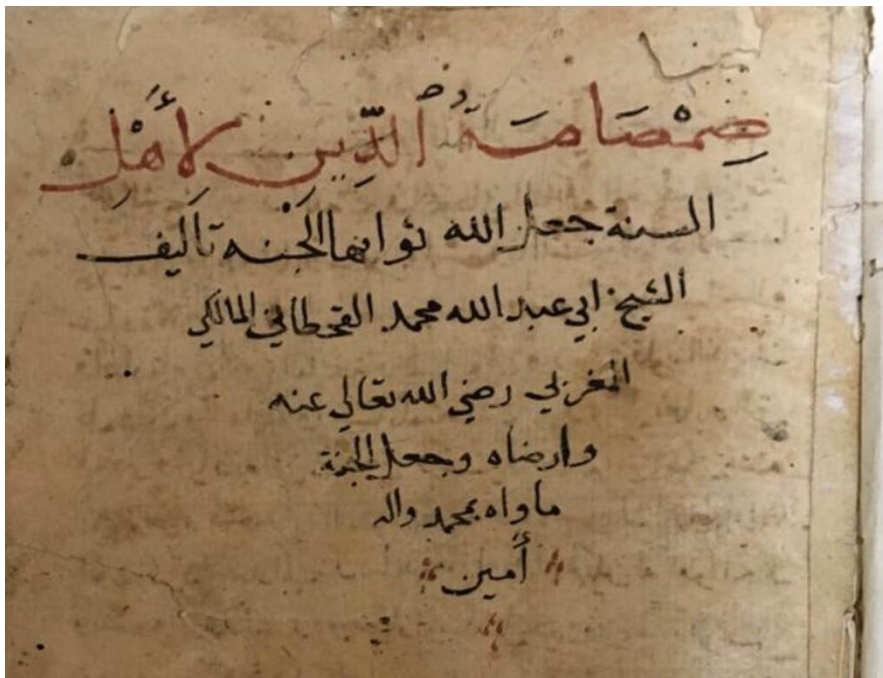 صِمْصَامَةُ الدِّين لأهْلِ
السنة جعل الله ثوابها الجَنْه تأليف
الشيخ ابي عبد الله محمد القحطاني المالكي
المغربي رضي الله تعالي عنه
وارضاه وجعل الجنة
ماواه بمحمد واله
أمين